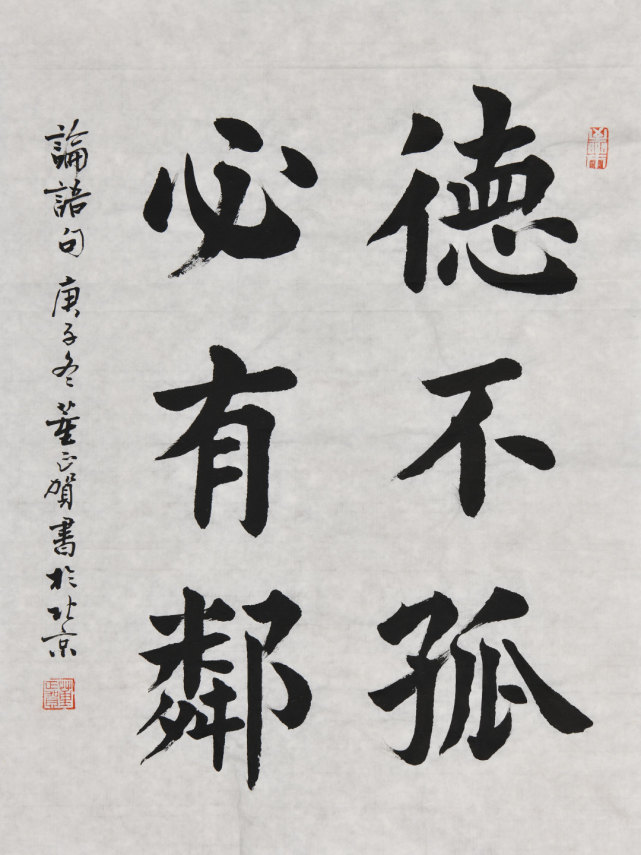 德不孤
必有鄰
論語句 庚子冬 董正賀書於北京